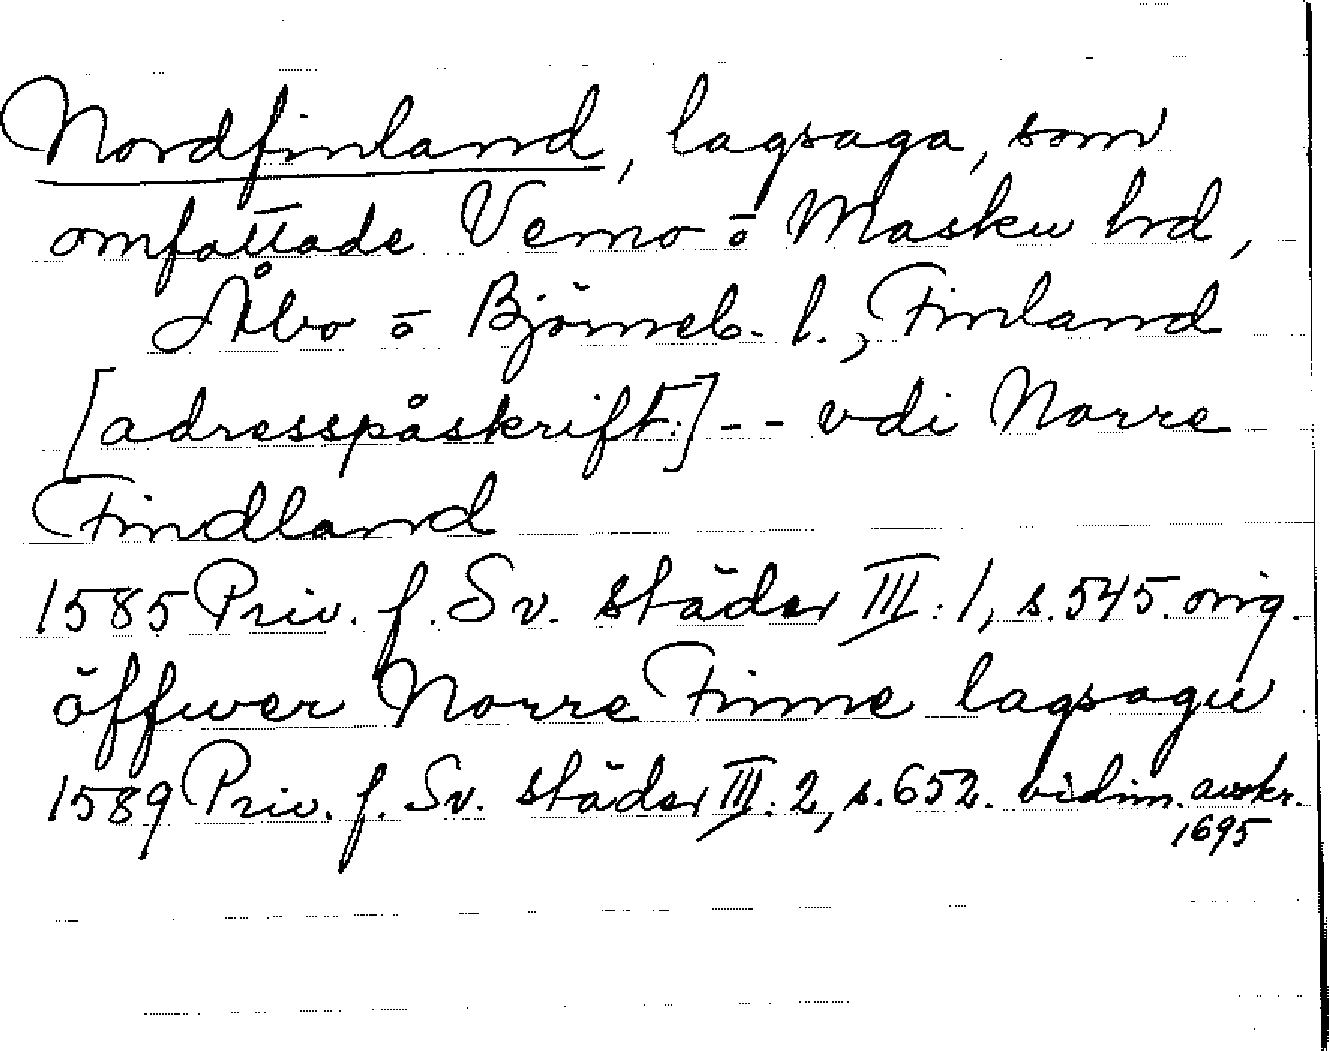 Nordfinland, lagsaga, som
omfattade Vemo o Masku hrd,
Åbo o Björneb. l., Finland
[adresspåskrift:] - - vdi Norre
Findland
1585 Priv. f. Sv. städer III: 1, s. 545. orig.
öffwer Norre Finne lagsagu
1589 Priv. f. Sv. städer III: 2, s. 652. vidim. avskr.
1695